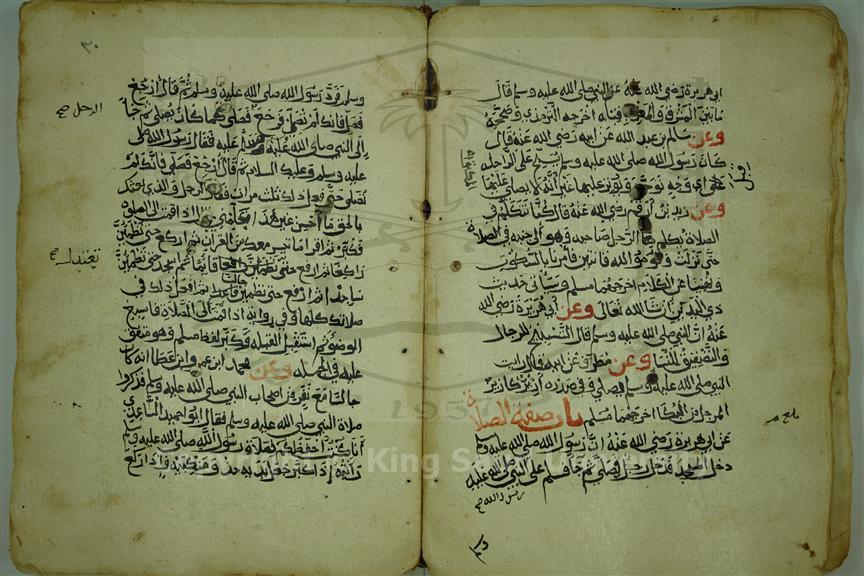 ابي هريرة رضي الله عنه عن النبي صلى الله عليه وسلم قال
ما بين المشرق والمغرب قبلة اخرجه الترمذي وصححه
وعن سالم بن عبد الله عن ابيه رضي الله عنه قال
كان رسول الله صلى الله عليه وسلم يسبح على الراحلة
قبل اي وجه توجه ويوتر عليها غير انه لا يصلي عليها
المكتوبة
وعن زيد بن ارقم رضي الله عنه قال كنا نتكلم في
الصلاة يكلم الرجل صاحبه وهو الى جنبه في الصلاة
حتى نزلت وقوموا لله قانتين فامرنا بالسكوت
ونهينا عن الكلام اخرجهما مسلم وسياتي حديث
ذي اليدين ان شا الله تعالى وعن ابي هريرة رضي الله
عنه ان النبي صلى الله عليه وسلم قال التسبيح للرجال
والتصفيق للنسا وعن مطرف عن ابيه قال رايت
النبي صلى الله عليه وسلم يصلي وفي صدره ازيز كازيز
المرجل من البكا اخرجهما مسلم باب صفة الصلاة
عن ابي هريرة رضي الله عنه ان رسول الله صلى الله عليه وسلم
دخل المسجد فدخل رجل فصلى ثم جا فسلم على النبي صلى الله عليه
رسول الله صح
وسلم فرد رسول الله صلى الله عليه وسلم ثم قال ارجع
فصل فانك لم تصل فرجع فصلى كما كان يصلي ثم جا
الرجل صح
الى النبي صلى الله عليه وسلم فسلم عليه فقال رسول الله صلى
عليه وسلم وعليك السلام ثم قال ارجع فصل فانك لم
تصل حتى فعل ذلك ثلث مرات فقال الرجل والذي بعثك
بالحق ما احسن غير هذا فعلمني قال اذا قمت الى الصلوة
فكبر ثم اقرا ما تيسر معك من القران ثم اركع حتى تطمئن
راكعا ثم ارفع حتى تعتدل قايما ثم اسجد حتى تطمئن
تعتدل صح
ساجدا ثم ارفع حتى تطمئن قاعدا ثم افعل ذلك في
صلاتك كلها وفي رواية اذا قمت الى الصلاة فاسبغ
الوضوء ثم استقبل القبلة فكبر لفظ مسلم وهو متفق
عليه في الجملة وعن محمد ابن عمرو ابن عطا انه كان
جالسا مع نفر من اصحاب النبي صلى الله عليه وسلم فذكروا
صلاة النبي صلى الله عليه وسلم فقال ابو حميد الساعدي
انا كنت احفظكم لصلاة رسول الله صلى الله عليه وسلم
رايته اذا كبر جعل يديه حذو منكبيه واذا ركع
King
1957